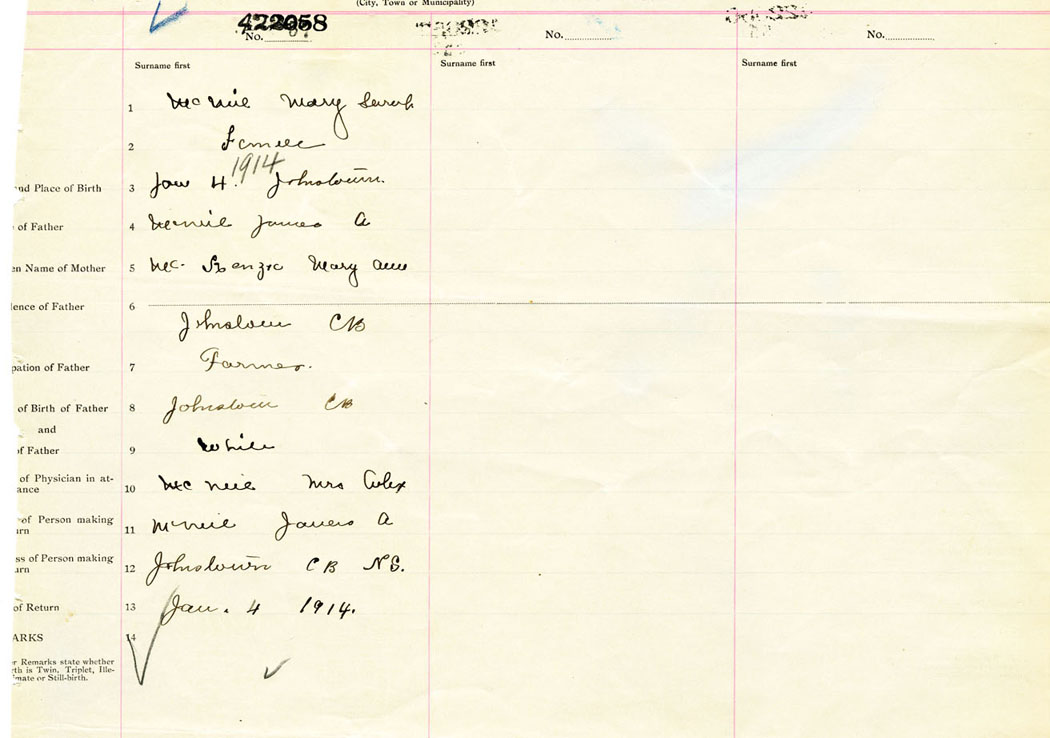 (City, Town or Municipality)
422058
No.
No.
No.
Surname first
Surname first
Surname first
1 McNeil Mary Sarah
2 Female
nd Place of Birth 3 Jan 4. 1914 Johnstown.
of Father 4 McNeil James A
en Name of Mother 5 Mc Kenzie Mary Ann
lence of Father 6
Johnstown CB
pation of Father 7 Farmer.
of Birth of Father 8 Johnstown CB
and
of Father 9 White
of Physician in at-
ance 10 McNeil Mrs Alex
of Person making
urn 11 McNeil James A
ss of Person making
urn 12 Johnstown CB NS.
of Return 13 Jan. 4 1914.
ARKS 14
r Remarks state whether
rth is Twin, Triplet, Ille-
mate or Still-birth.